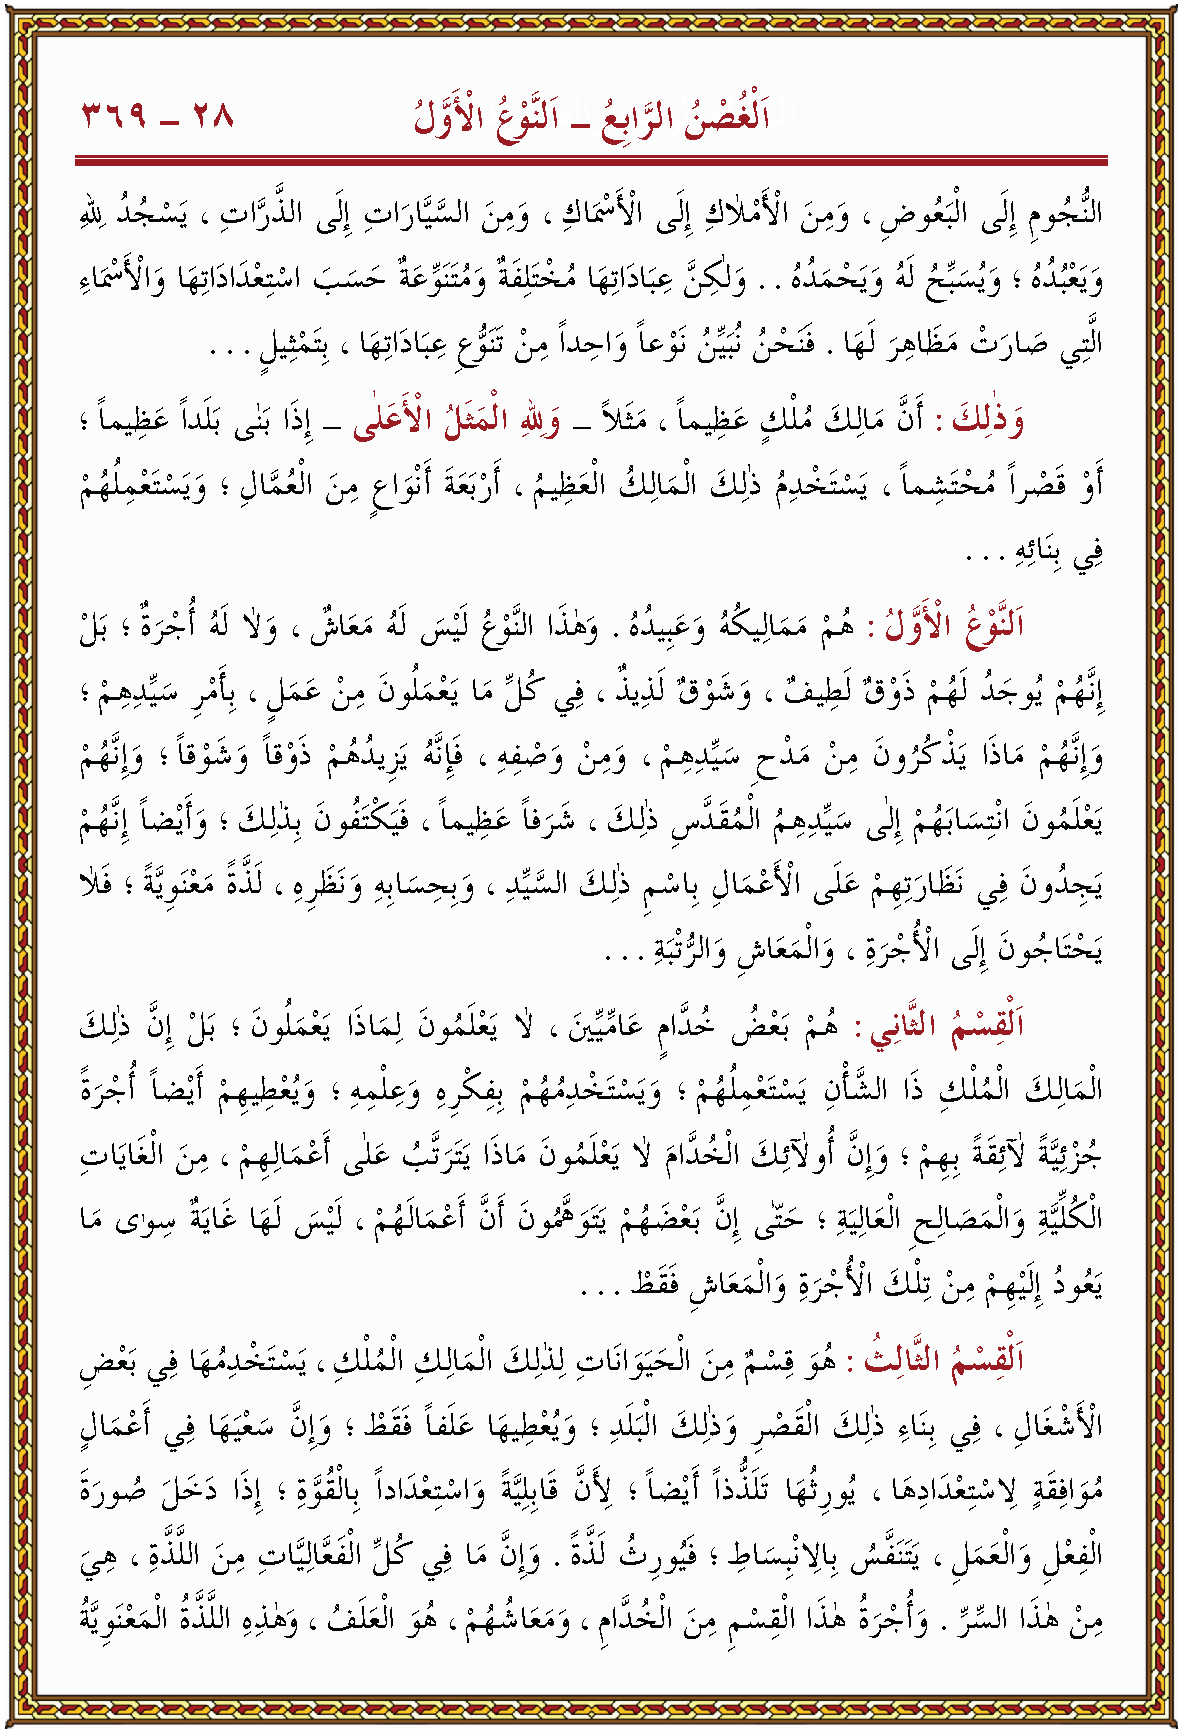 اَلْغُصْنُ الرَّابِعُ – اَلنَّوْعُ الْأَوَّلُ ٢٨ – ٣٦٩
النُّجُومِ إِلَى الْبَعُوضِ ، وَمِنَ الْأَمْلَاكِ إِلَى الْأَسْمَاكِ ، وَمِنَ السَّيَّارَاتِ إِلَى الذَّرَّاتِ ، يَسْجُدُ لِلّٰهِ
وَيَعْبُدُهُ ؛ وَيُسَبِّحُ لَهُ وَيَحْمَدُهُ . . وَلٰكِنَّ عِبَادَاتِهَا مُخْتَلِفَةٌ وَمُتَنَوِّعَةٌ حَسَبَ اسْتِعْدَادَاتِهَا وَالْأَسْمَاءِ
الَّتِي صَارَتْ مَظَاهِرَ لَهَا . فَنَحْنُ نُبَيِّنُ نَوْعاً وَاحِداً مِنْ تَنَوُّعِ عِبَادَاتِهَا ، بِتَمْثِيلٍ . . .
وَذٰلِكَ : أَنَّ مَالِكَ مُلْكٍ عَظِيماً ، مَثَلاً – وَلِلّٰهِ الْمَثَلُ الْأَعْلٰى – إِذَا بَنٰى بَلَداً عَظِيماً ؛
أَوْ قَصْراً مُحْتَشِماً ، يَسْتَخْدِمُ ذٰلِكَ الْمَالِكُ الْعَظِيمُ ، أَرْبَعَةَ أَنْوَاعٍ مِنَ الْعُمَّالِ ؛ وَيَسْتَعْمِلُهُمْ
فِي بِنَائِهِ . . .
اَلنَّوْعُ الْأَوَّلُ : هُمْ مَمَالِيكُهُ وَعَبِيدُهُ . وَهٰذَا النَّوْعُ لَيْسَ لَهُ مَعَاشٌ ، وَلَا لَهُ أُجْرَةٌ ؛ بَلْ
إِنَّهُمْ يُوجَدُ لَهُمْ ذَوْقٌ لَطِيفٌ ، وَشَوْقٌ لَذِيذٌ ، فِي كُلِّ مَا يَعْمَلُونَ مِنْ عَمَلٍ ، بِأَمْرِ سَيِّدِهِمْ ؛
وَإِنَّهُمْ مَاذَا يَذْكُرُونَ مِنْ مَدْحِ سَيِّدِهِمْ ، وَمِنْ وَصْفِهِ ، فَإِنَّهُ يَزِيدُهُمْ ذَوْقاً وَشَوْقاً ؛ وَإِنَّهُمْ
يَعْلَمُونَ انْتِسَابَهُمْ إِلٰى سَيِّدِهِمُ الْمُقَدَّسِ ذٰلِكَ ، شَرَفاً عَظِيماً ، فَيَكْتَفُونَ بِذٰلِكَ ؛ وَأَيْضاً إِنَّهُمْ
يَجِدُونَ فِي نَظَارَتِهِمْ عَلَى الْأَعْمَالِ بِاسْمِ ذٰلِكَ السَّيِّدِ ، وَبِحِسَابِهِ وَنَظَرِهِ ، لَذَّةً مَعْنَوِيَّةً ؛ فَلَا
يَحْتَاجُونَ إِلَى الْأُجْرَةِ ، وَالْمَعَاشِ وَالرُّتْبَةِ . . .
اَلْقِسْمُ الثَّانِي : هُمْ بَعْضُ خُدَّامٍ عَامِّيِّينَ ، لَا يَعْلَمُونَ لِمَاذَا يَعْمَلُونَ ؛ بَلْ إِنَّ ذٰلِكَ
الْمَالِكَ الْمُلْكِ ذَا الشَّأْنِ يَسْتَعْمِلُهُمْ ؛ وَيَسْتَخْدِمُهُمْ بِفِكْرِهِ وَعِلْمِهِ ؛ وَيُعْطِيهِمْ أَيْضاً أُجْرَةً
جُزْئِيَّةً لَائِقَةً بِهِمْ ؛ وَإِنَّ أُولٰئِكَ الْخُدَّامَ لَا يَعْلَمُونَ مَاذَا يَتَرَتَّبُ عَلٰى أَعْمَالِهِمْ ، مِنَ الْغَايَاتِ
الْكُلِّيَّةِ وَالْمَصَالِحِ الْعَالِيَةِ ؛ حَتّٰى إِنَّ بَعْضَهُمْ يَتَوَهَّمُونَ أَنَّ أَعْمَالَهُمْ ، لَيْسَ لَهَا غَايَةٌ سِوٰى مَا
يَعُودُ إِلَيْهِمْ مِنْ تِلْكَ الْأُجْرَةِ وَالْمَعَاشِ فَقَطْ . . .
اَلْقِسْمُ الثَّالِثُ : هُوَ قِسْمٌ مِنَ الْحَيَوَانَاتِ لِذٰلِكَ الْمَالِكِ الْمُلْكِ ، يَسْتَخْدِمُهَا فِي بَعْضِ
الْأَشْغَالِ ، فِي بِنَاءِ ذٰلِكَ الْقَصْرِ وَذٰلِكَ الْبَلَدِ ؛ وَيُعْطِيهَا عَلَفاً فَقَطْ ؛ وَإِنَّ سَعْيَهَا فِي أَعْمَالٍ
مُوَافِقَةٍ لِاسْتِعْدَادِهَا ، يُورِثُهَا تَلَذُّذاً أَيْضاً ؛ لِأَنَّ قَابِلِيَّةً وَاسْتِعْدَاداً بِالْقُوَّةِ ؛ إِذَا دَخَلَ صُورَةَ
الْفِعْلِ وَالْعَمَلِ ، يَتَنَفَّسُ بِالِانْبِسَاطِ ؛ فَيُورِثُ لَذَّةً . وَإِنَّ مَا فِي كُلِّ الْفَعَّالِيَّاتِ مِنَ اللَّذَّةِ ، هِيَ
مِنْ هٰذَا السِّرِّ . وَأُجْرَةُ هٰذَا الْقِسْمِ مِنَ الْخُدَّامِ ، وَمَعَاشُهُمْ ، هُوَ الْعَلَفُ ، وَهٰذِهِ اللَّذَّةُ الْمَعْنَوِيَّةُ